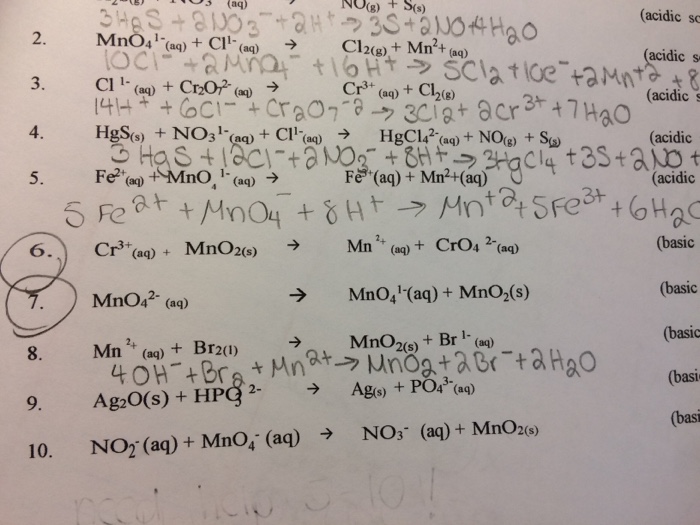 (aq) NO(g) + S(s)
3HgS + 2NO3⁻ + 2H⁺ → 3S + 2NO+4H2O (acidic so
2. MnO4¹⁻(aq) + Cl¹⁻(aq) → Cl2(g) + Mn²⁺(aq)
(acidic s
10Cl⁻ + 2MnO4⁻ + 16H⁺ → 5Cl2 + 10e⁻ + 2Mn⁺² + 8
3. Cl¹⁻(aq) + Cr2O7²⁻(aq) → Cr³⁺(aq) + Cl2(g) (acidic s
14H⁺ + 6Cl⁻ + Cr2O7⁻² → 3Cl2 + 2Cr³⁺ + 7H2O
4. HgS(s) + NO3¹⁻(aq) + Cl¹⁻(aq) → HgCl4²⁻(aq) + NO(g) + S(s) (acidic
3HgS + 12Cl⁻ + 2NO3⁻ + 8H⁺ → 3HgCl4 + 3S + 2NO +
5. Fe²⁺(aq) + MnO4¹⁻(aq) → Fe³⁺(aq) + Mn²⁺(aq) (acidic
5Fe²⁺ + MnO4⁻ + 8H⁺ → Mn⁺² + 5Fe³⁺ + 6H2O
6. Cr³⁺(aq) + MnO2(s) → Mn²⁺(aq) + CrO4²⁻(aq) (basic
7. MnO4²⁻(aq) → MnO4¹⁻(aq) + MnO2(s) (basic
8. Mn²⁺(aq) + Br2(l) → MnO2(s) + Br¹⁻(aq) (basic
4OH⁻ + Br2 + Mn²⁺ → MnO2 + 2Br⁻ + 2H2O
9. Ag2O(s) + HPO2²⁻ → Ag(s) + PO4³⁻(aq) (basi
10. NO2⁻(aq) + MnO4⁻(aq) → NO3⁻(aq) + MnO2(s) (basi
need help 5-10!